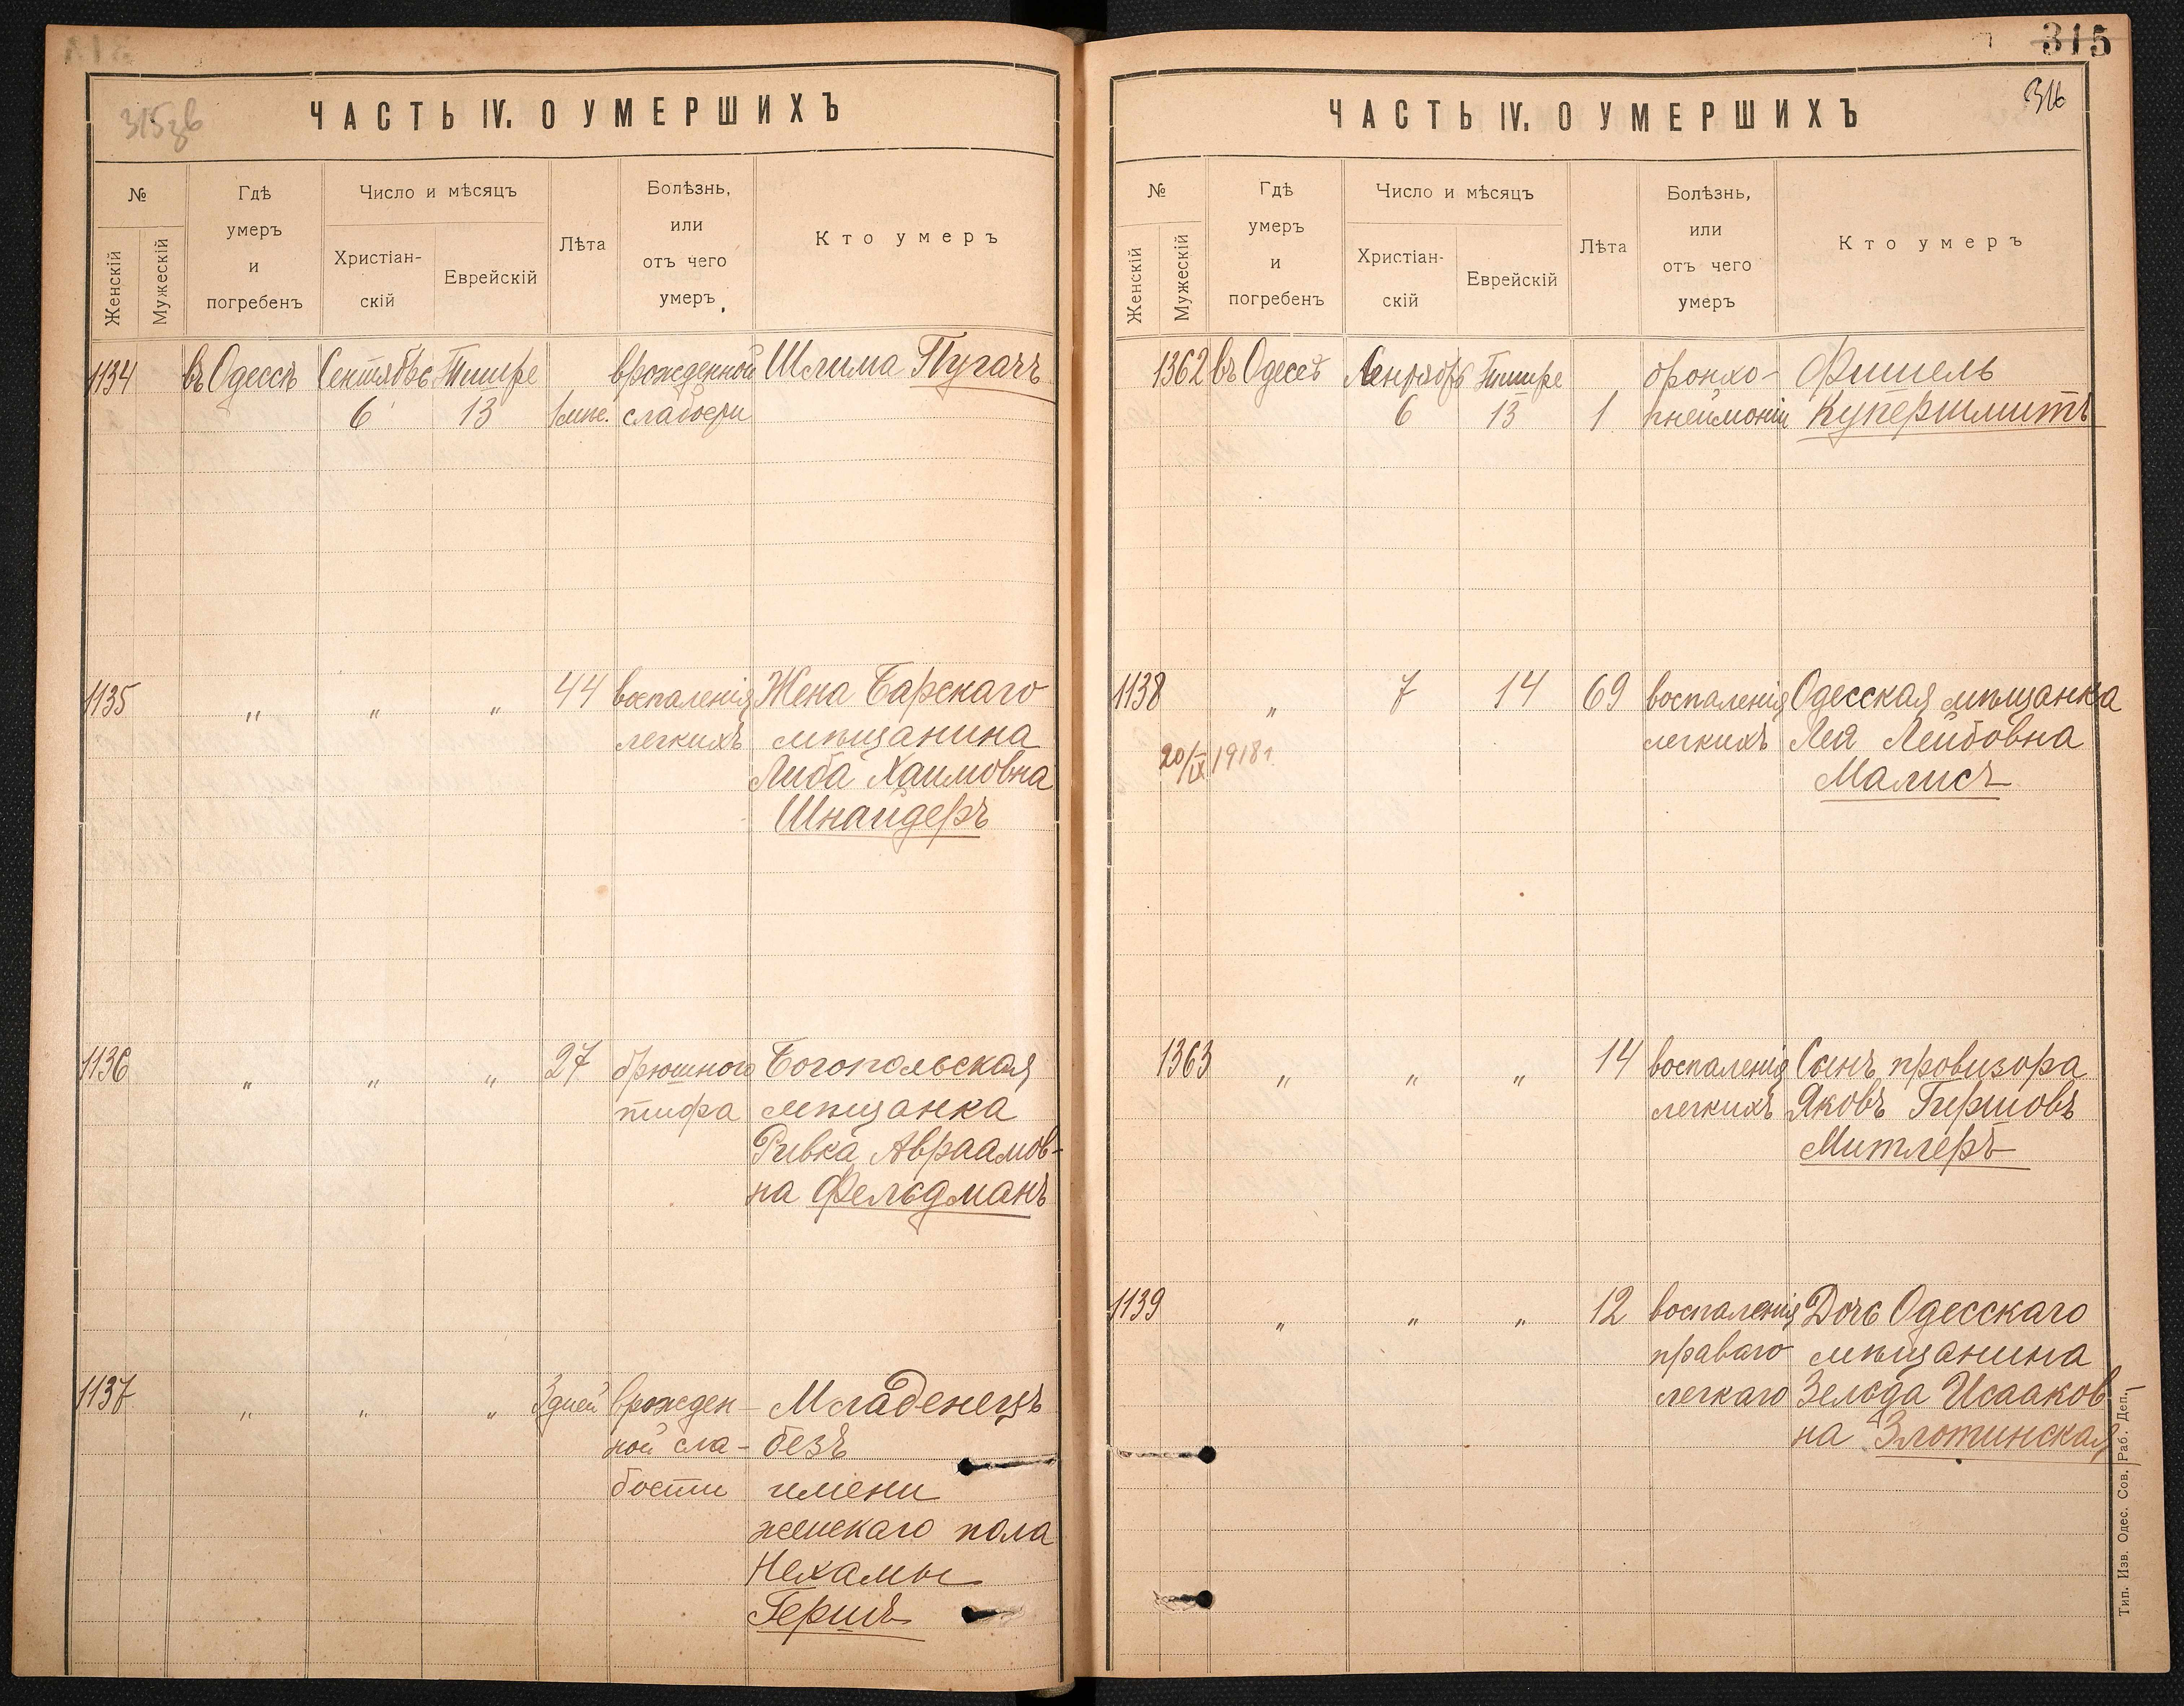 315зв
ЧАСТЬ IV. О УМЕРШИХЪ
№
Женскій
Мужескій
Гдѣ
умеръ
и
погребенъ
Число и мѣсяцъ
Христіан-
скій
Еврейскій
Лѣта
Болѣзнь,
или
отъ чего
умеръ
Кто умеръ
1134 въ Одессѣ Сентябрь Тишре врожденной Шлима Пугачъ
6 13 1 мѣс. слабости
1135 " " " 44 воспаленія Жена Барскаго
легкихъ мѣщанина
Либа Хаимовна
Шнайдеръ
1136 " " " 27 брюшного Богопольская
тифа мѣщанка
Ривка Авраамов-
на Фельдманъ
1137 " " " 3 дней врожден- Младенецъ
ной сла- безъ
бости имени
женскаго пола
Нехамы
Гершъ
315
316
ЧАСТЬ IV. О УМЕРШИХЪ
№
Женскій
Мужескій
Гдѣ
умеръ
и
погребенъ
Число и мѣсяцъ
Христіан-
скій
Еврейскій
Лѣта
Болѣзнь,
или
отъ чего
умеръ
Кто умеръ
1362 въ Одессѣ Сентябрь Тишре бронхо- Фишель
6 13 1 пнеймоніи Купершмитъ
1138 " 7 14 69 воспаленія Одесская мѣщанка
легкихъ Лея Лейбовна
20/IX 1918 г.
Малисъ
1363 " " " 14 воспаленія Сынъ провизора
легкихъ Яковъ Гершовъ
Митлеръ
1139 " " " 12 воспаленія Дочь Одесскаго
праваго мѣщанина
легкаго Зельда Исааков-
на Злотинская
Тип. Изв. Одес. Сов. Раб. Деп.